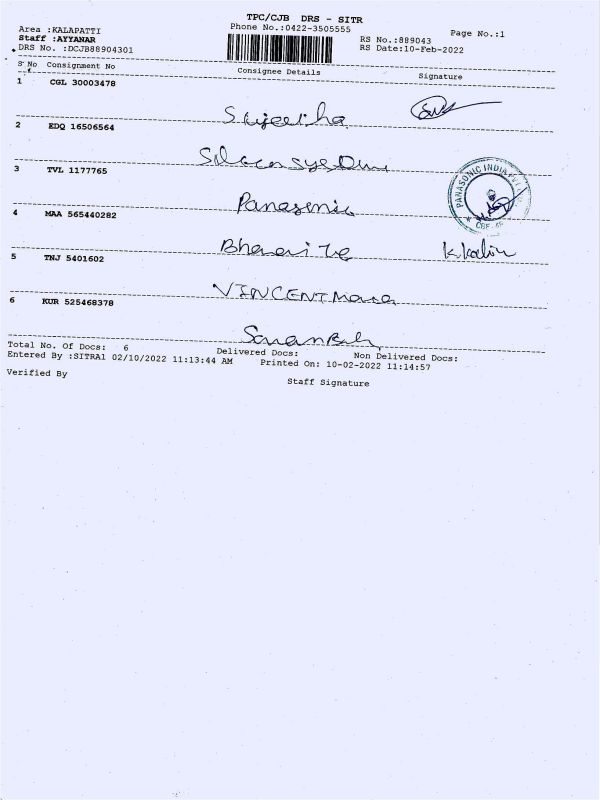 TPC/CJB DRS - SITR
Area :KALAPATTI Phone No.:0422-3505555 Page No.:1
Staff :AYYANAR RS No.:889043
DRS No. :DCJB88904301 RS Date:10-Feb-2022
S No Consignment No Consignee Details Signature
1 CGL 30003478
Sujeetha
2 EDQ 16506564
3 TVL 1177765
Panasonic
PANASONIC INDIA PVT
CBE
4 MAA 565440282
5 TNJ 5401602
VINCENT
6 KUR 525468378
Total No. Of Docs: 6 Delivered Docs: Non Delivered Docs:
Entered By :SITRA1 02/10/2022 11:13:44 AM Printed On: 10-02-2022 11:14:57
Verified By Staff Signature